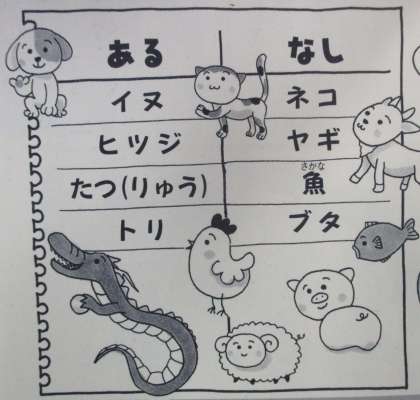 ある なし
イヌ ネコ
ヒツジ ヤギ
たつ(りゅう) 魚
さかな
トリ ブタ